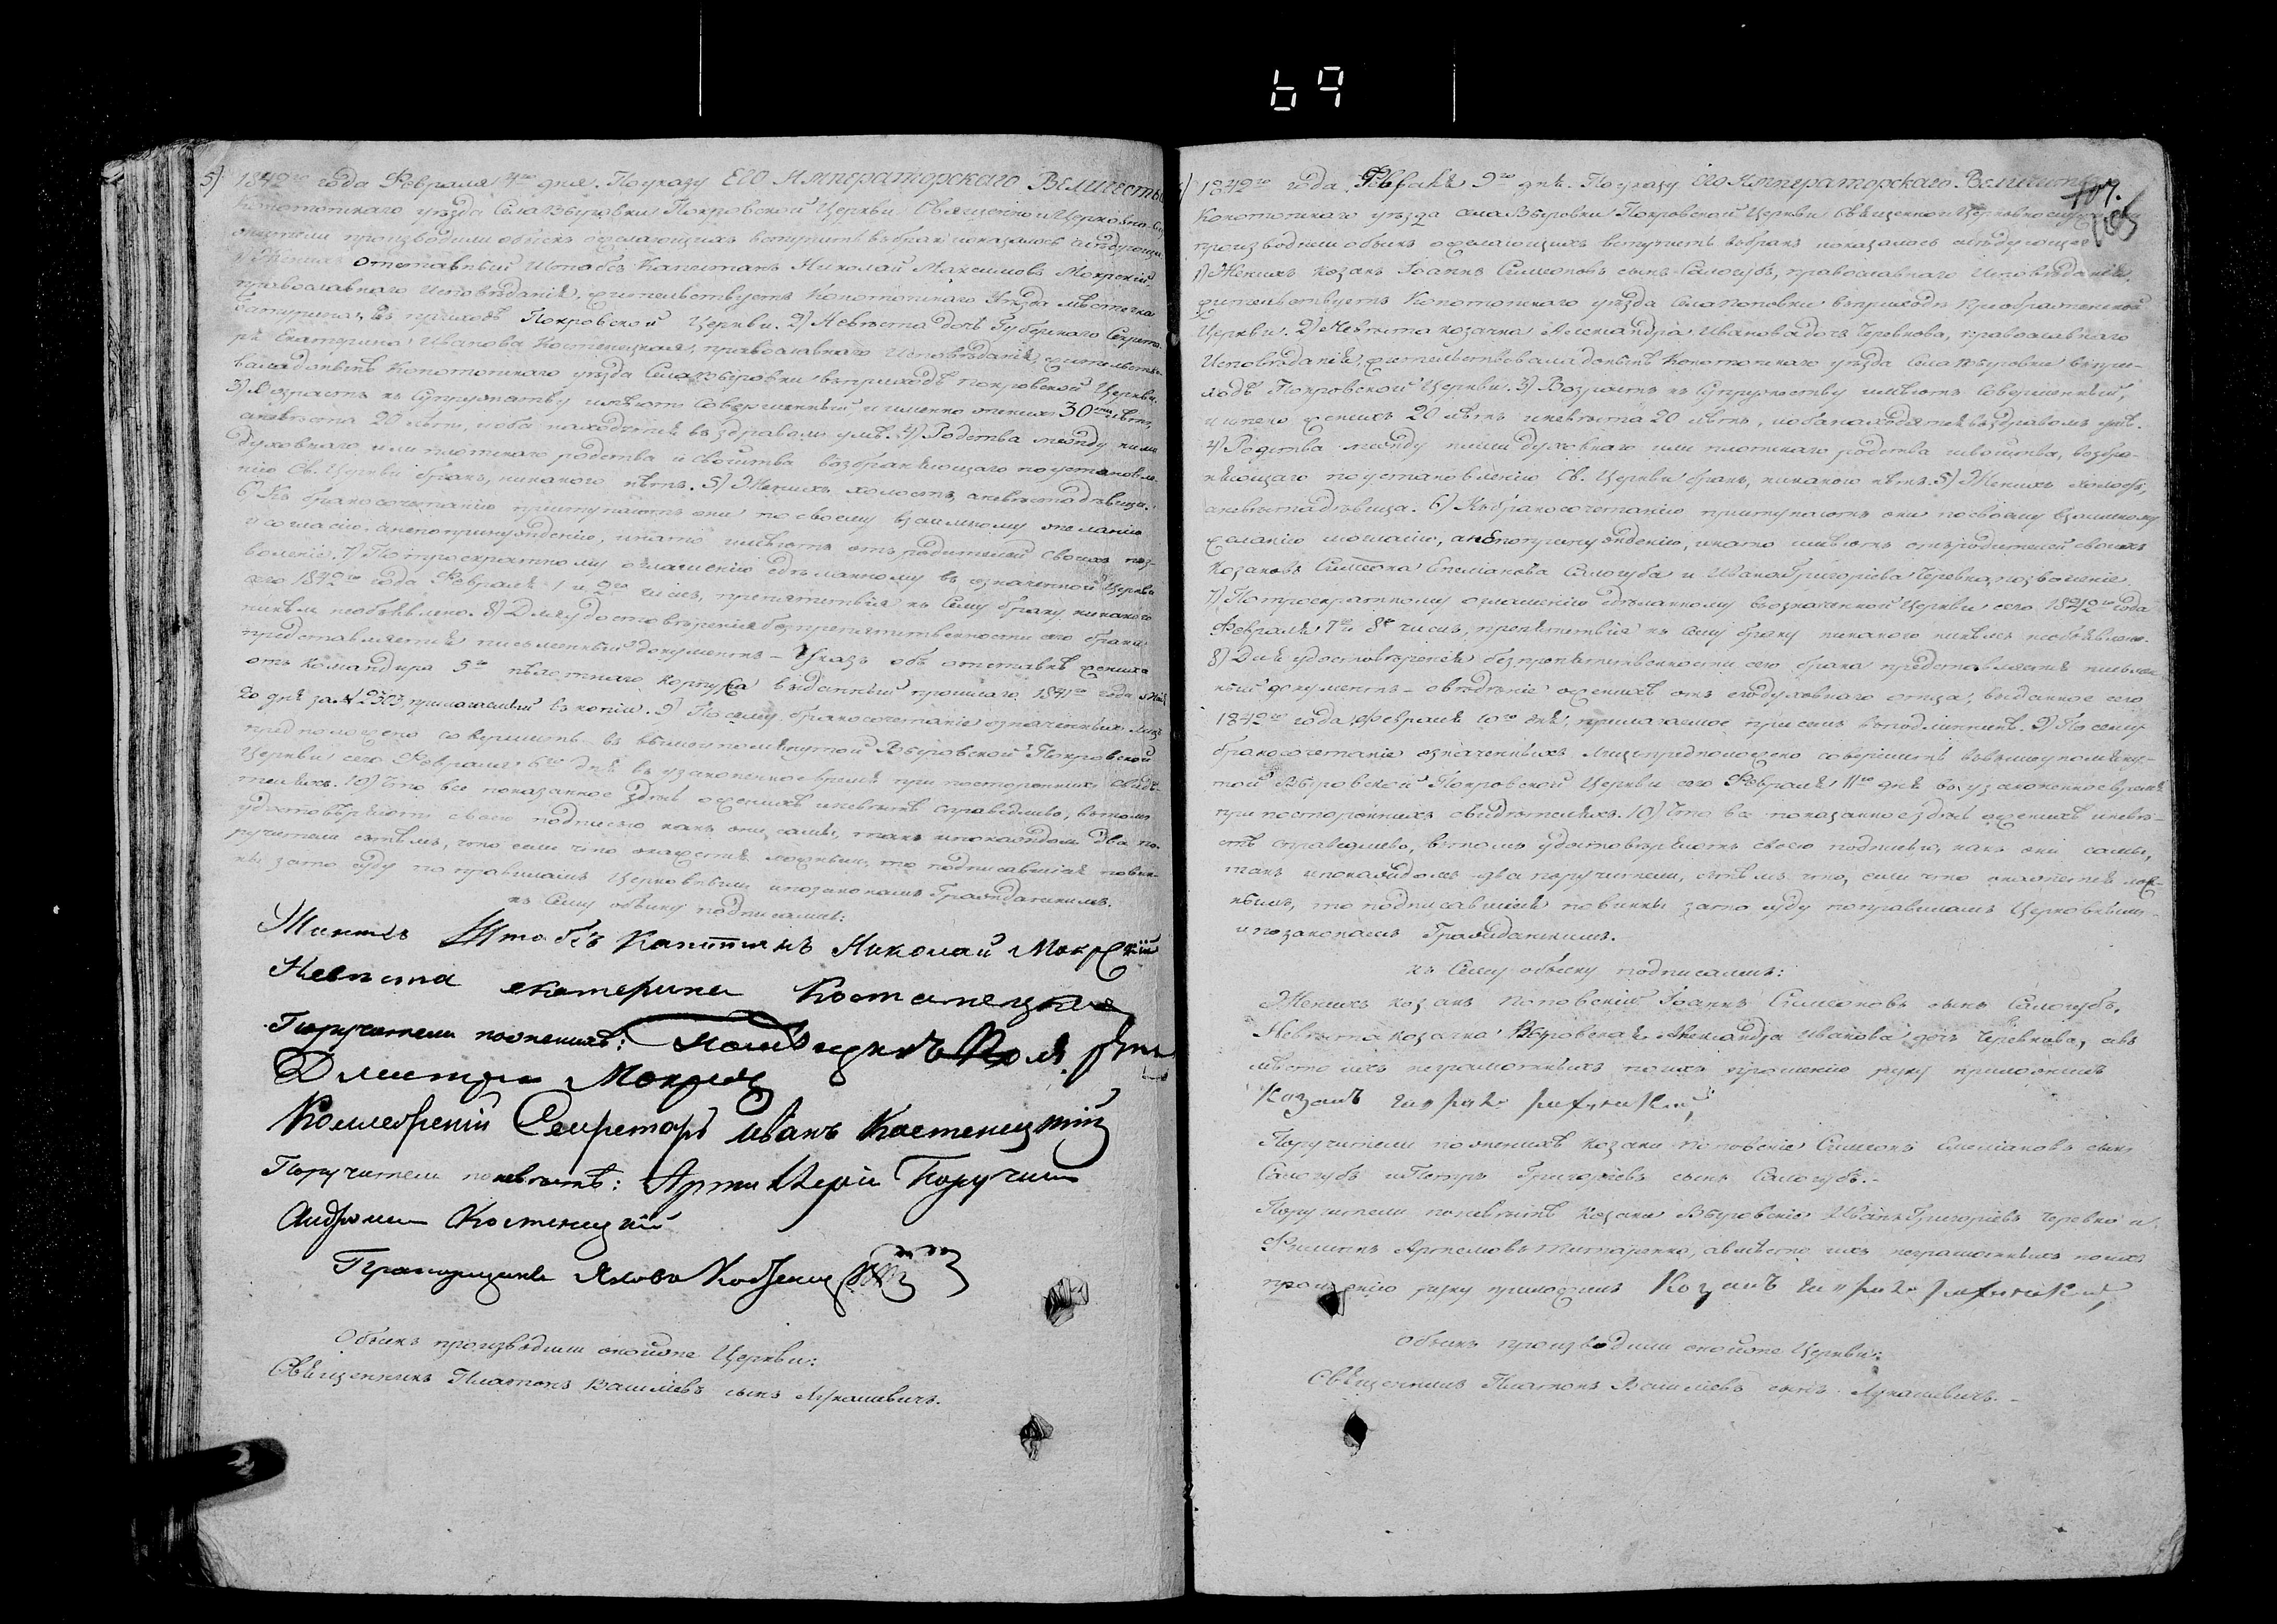 69
5) 1842го года Февраля 4го дня. По указу Его Императорскаго Величества
Конотопскаго уѣзда Села Выровки Покровской Церкви Священно и Церковно-слу
жители производили обыскъ о желающихъ вступить въ бракъ и оказалось слѣдующее
1) Женихъ отставный Штабсъ Капитанъ Николай Максимовъ Мокрскій
православнаго Исповѣданія, жительствуетъ Конотопскаго Уѣзда мѣстечка
Батурина, въ приходѣ Покровской Церкви. 2) Невѣста дочь Губернскаго Секрета
ря Екатерина Иванова Костенецкая, православнаго Исповѣданія, жительство-
вала донынѣ Конотопскаго уѣзда Села Выровки въ приходѣ Покровской Церкви.
3) Возрастъ къ Супружеству имѣютъ Совершенный и именно женихъ 30ть лѣтъ,
а невѣста 20 лѣтъ, и оба находятся въ здравомъ умѣ. 4) Родства между ними
духовнаго или плотскаго родства и свойства возбраняющаго по установле-
нію Св. Церкви бракъ, никакого нѣтъ. 5) Женихъ холостъ, а невѣста дѣвица.
6) Къ бракосочетанію приступаютъ они по своему взаимному желанію
и согласію, а не по принужденію, и на то имѣютъ отъ родителей своихъ поз-
воленіе. 7) По троекратному оглашенію сдѣланному въ означенной Церкви
сего 1842го года Февраля 1 и 2го числъ, препятствія къ Сему браку никакого
никѣмъ необъявлено. 8) Для удостовѣренія безпрепятственности сего брака
представляется письменный документъ – Указъ объ отставкѣ жениха
отъ командира 5го пѣхотнаго корпуса выданный прошлаго 1841го года
20 дня за № 2303, прилагаемый въ копіи. 9) По сему бракосочетаніе означенныхъ лицъ
предположено совершить въ вышеупомянутой Выровской Покровской
Церкви сего Февраля 6го дня въ узаконенное время при постороннихъ свидѣ-
теляхъ. 10) Что все показанное здѣсь о женихѣ и невѣстѣ справедливо, въ томъ
удостовѣряютъ своею подписью какъ они сами, такъ и по каждомъ два по-
ручители съ тѣмъ, что если что окажется ложнымъ, то подписавшіеся повин-
ны за то суду по правиламъ Церковнымъ и по законамъ Гражданскимъ.
къ Сему обыску подписались:
Женихъ Штабсъ Капитанъ Николай Мокрскій
Невѣста екатерина Костенецкая
Поручители по женихѣ:
Дмитрій
Коллежскій Секретарь Иванъ Костенецкій
Поручители по невѣстѣ: Артиллеріи Поручикъ
Костенецкій
Прапорщикъ Яковъ
Обыскъ производили оной Церкви:
Священникъ Платонъ Василіевъ сынъ Лукашевичъ.
107.
105
1842го года, Февраля 9го дня. По указу Его Императорскаго Величества
Конотопскаго уѣзда села Выровки Покровской Церкви Священно и Церковнослужители
производили обыскъ о желающихъ вступить въ бракъ и оказалось слѣдующее
1) Женихъ козакъ Іоаннъ Симеоновъ сынъ Салогубъ, православнаго Исповѣданія,
жительствуетъ Конотопскаго уѣзда Села Поповки въ приходѣ Преображенской
Церкви. 2) Невѣста козачка Александра Иванова дочь Черевкова, православнаго
Исповѣданія, жительствовала донынѣ Конотопскаго уѣзда Села Выровки въ при-
ходѣ Покровской Церкви. 3) Возрастъ къ Супружеству имѣютъ Совершенный,
и именно женихъ 20 лѣтъ и невѣста 20 лѣтъ, и оба находятся въ здравомъ умѣ.
4) Родства между ними духовнаго или плотскаго родства и свойства, возбра-
няющаго по установленію Св. Церкви бракъ, никакого нѣтъ. 5) Женихъ холостъ,
а невѣста дѣвица. 6) Къ бракосочетанію приступаютъ они по своему взаимному
желанію и согласію, а не по принужденію, и на то имѣютъ отъ родителей своихъ
козаковъ Симеона Салогуба и Ивана Григоріева Черевка, позволеніе.
7) По троекратному оглашенію сдѣланному въ означенной Церкви сего 1842го года
Февраля 7го и 8го числъ, препятствія къ сему браку никакого никѣмъ необъявлено.
8) Для удостовѣренія безпрепятственности сего брака представляется письмен
ный документъ – свѣдѣніе о женихѣ отъ его духовнаго отца, выданное сего
1842го года Февраля 10го дня, прилагаемое при семъ въ подлинникѣ. 9) По сему
бракосочетаніе означенныхъ лицъ предположено совершить въ вышеупомяну-
той Выровской Покровской Церкви сего Февраля 11го дня въ узаконенное время
при постороннихъ свидѣтеляхъ. 10) Что все показанное здѣсь о женихѣ и невѣ-
стѣ справедливо, въ томъ удостовѣряютъ своею подписью, какъ они сами,
такъ и по каждомъ два поручители, съ тѣмъ что, если что окажется лож-
нымъ, то подписавшіеся повинны за то суду по правиламъ Церковнымъ
и по законамъ Гражданскимъ.
къ Сему обыску подписались:
Женихъ козакъ Поповскій Іоаннъ Симеоновъ сынъ Салогубъ.
Невѣста козачка Выровская Александра Иванова дочь Черевкова, а въ
мѣсто ихъ неграмотныхъ по ихъ прошенію руку приложилъ
Козакъ
Поручители по женихѣ козаки Поповскіе Симеонъ сынъ
Салогубъ и Петръ Григоріевъ сынъ Салогубъ.–
Поручители по невѣстѣ козаки Выровскіе Иванъ Григоріевъ Черевко и
Филиппъ Артемовъ Титаренко, а вмѣсто ихъ неграмотныхъ по ихъ
прошенію руку приложилъ Козакъ
Обыскъ производили оной Церкви:
Священникъ Платонъ Василіевъ сынъ Лукашевичъ.–